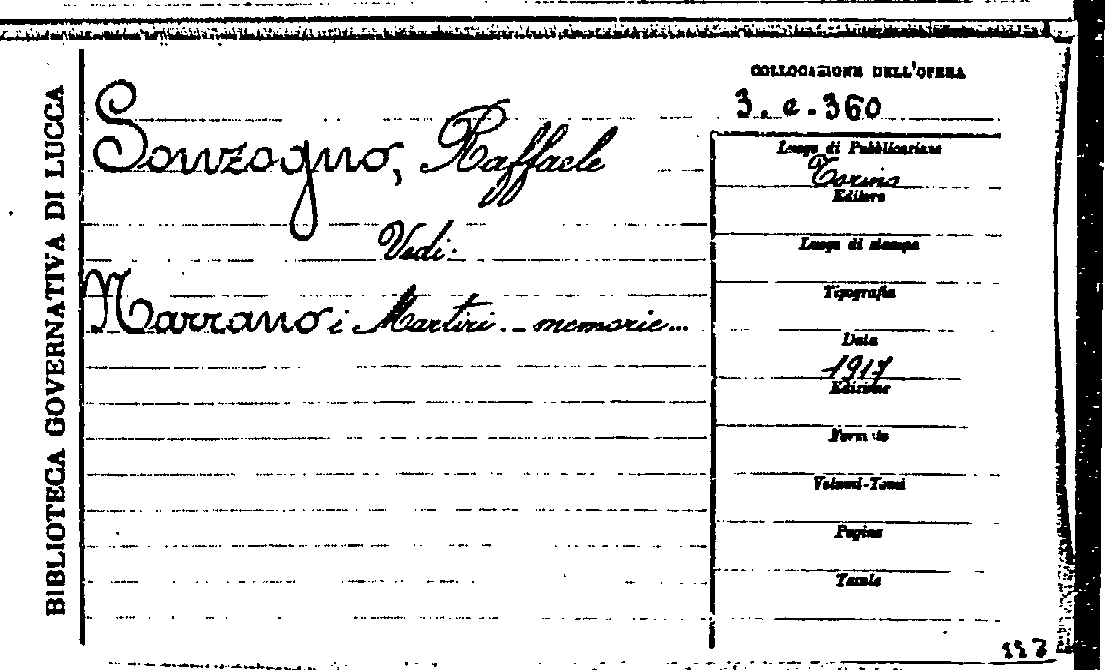 BIBLIOTECA GOVERNATIVA DI LUCCA
COLLOCAZIONE DELL'OPERA
3. a. 360
Sonzogno, Raffaele
Vedi:
Narrano i Martiri .. memorie...
Luogo di Pubblicazione
Torino
Editore
Luogo di stampa
Tipografia
Data
1917
Edizione
Formato
Volumi-Tomi
Pagine
Tavole